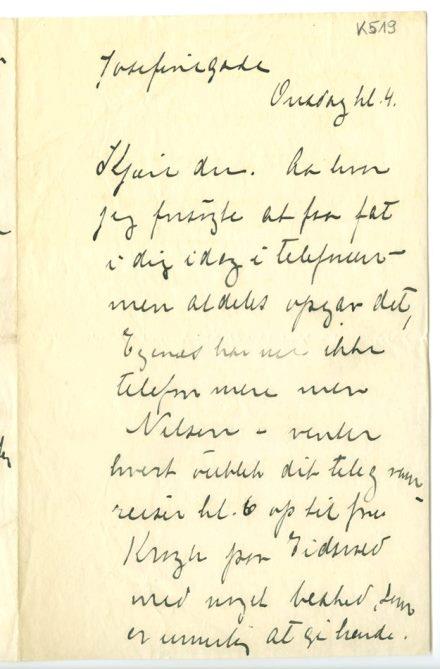 K519
Josefinegade
Onsdag kl. 4.
Kjære du. Aa hvor
jeg forsøgte at faa fat
i dig idag i telefonen –
men aldeles opgav det,
har ikke
telefon mere men
Nilsen – venter
hvert øieblik dit teleg ram –
reiser kl. 6 op til fru
Krogh paa Eidsvold
med noget besked, som
er umulig at gi hende.